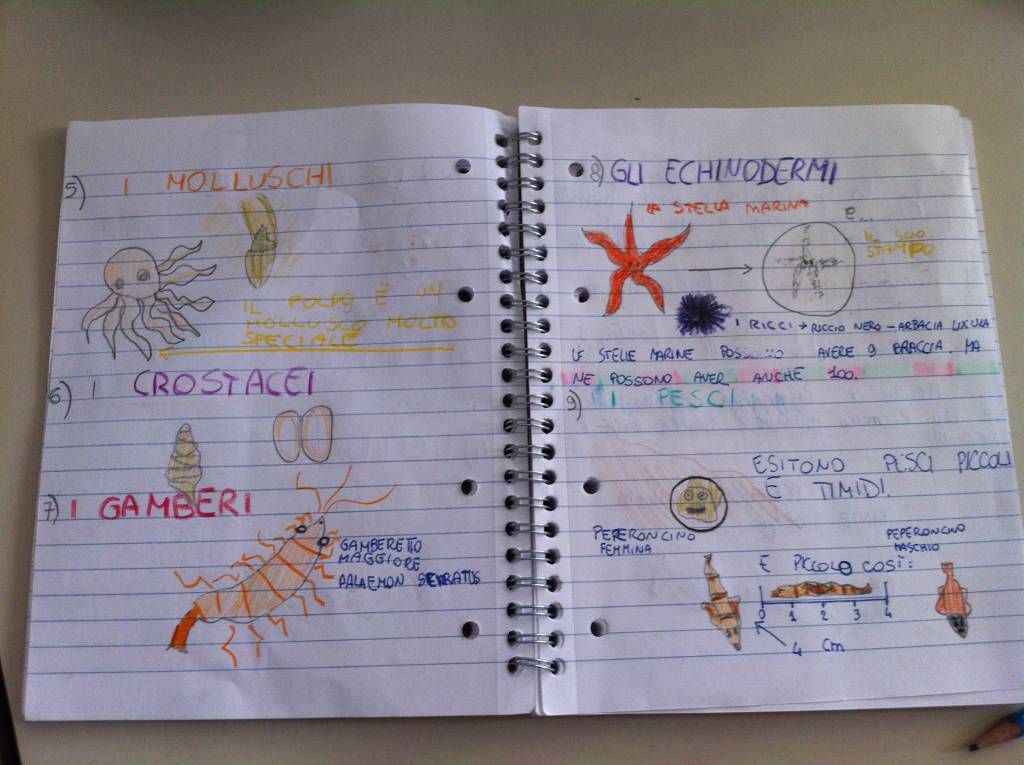 5) I MOLLUSCHI
IL POLPO È UN
MOLLUSCO MOLTO
SPECIALE
6) I CROSTACEI
7) I GAMBERI
GAMBERETTO
MAGGIORE
PALAEMON SERRATUS
8) GLI ECHINODERMI
LA STELLA MARINA
E...
IL SUO
STAMPO
I RICCI → RICCIO NERO - ARBACIA LIXULA
LE STELLE MARINE POSSONO AVERE 9 BRACCIA. MA
NE POSSONO AVER ANCHE 100.
9) I PESCI
ESITONO PESCI PICCOLI
E TIMIDI.
PEPERONCINO
FEMMINA
PEPERONCINO
MASCHIO
E PICCOLO COSÌ:
0 1 2 3 4
4 cm